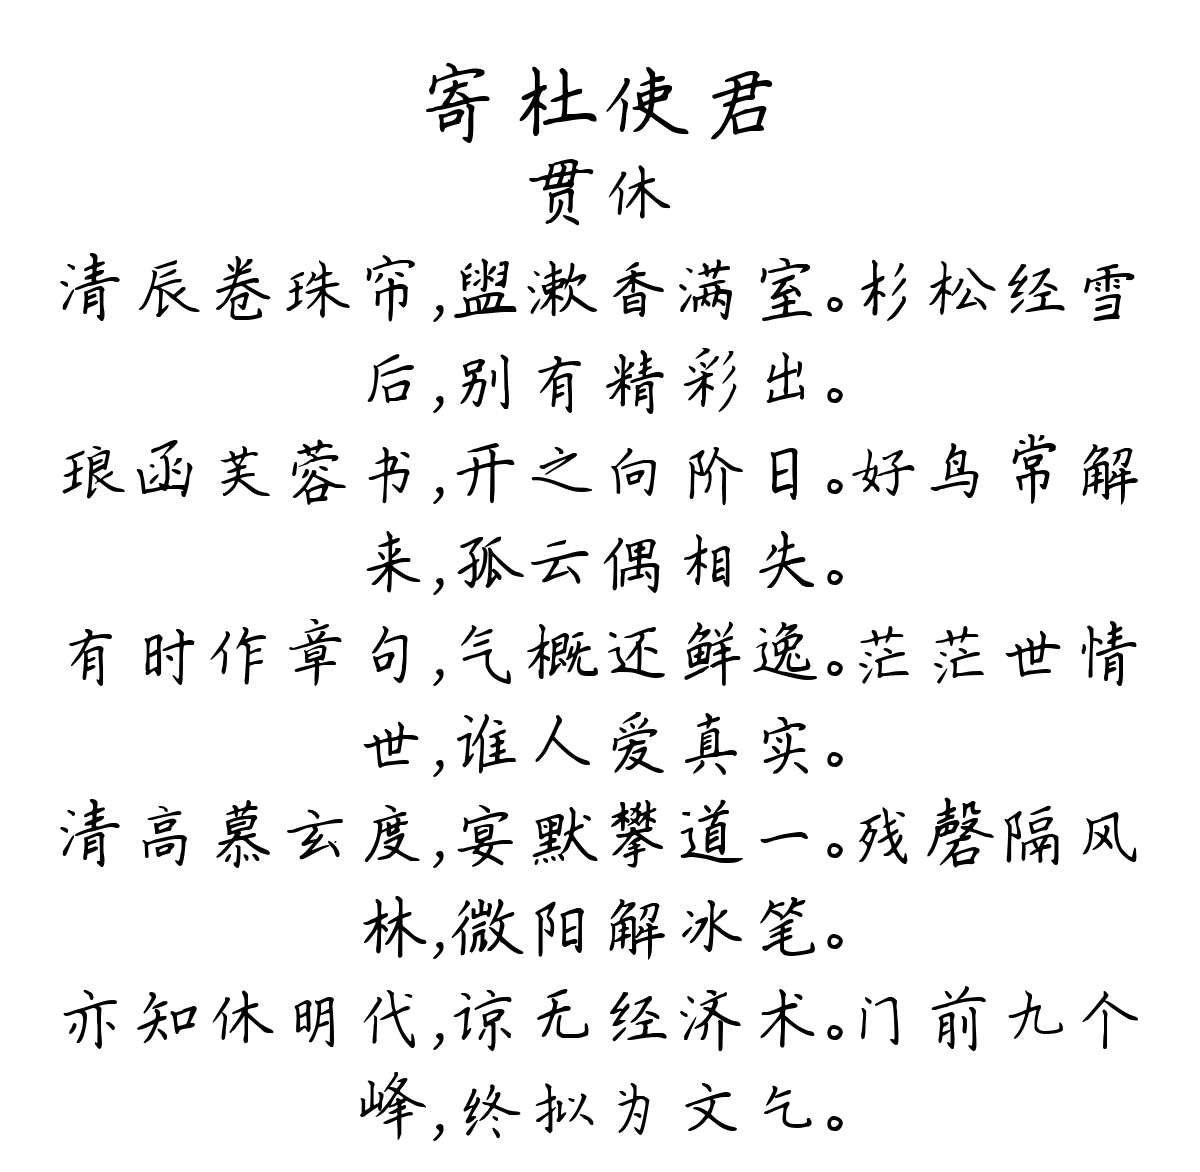 寄杜使君
贯休
清辰卷珠帘,盥漱香满室。杉松经雪
后,别有精彩出。
琅函芙蓉书,开之向阶日。好鸟常解
来,孤云偶相失。
有时作章句,气概还鲜逸。茫茫世情
世,谁人爱真实。
清高慕玄度,宴默攀道一。残磬隔风
林,微阳解冰笔。
亦知休明代,谅无经济术。门前九个
峰,终拟为文乞。